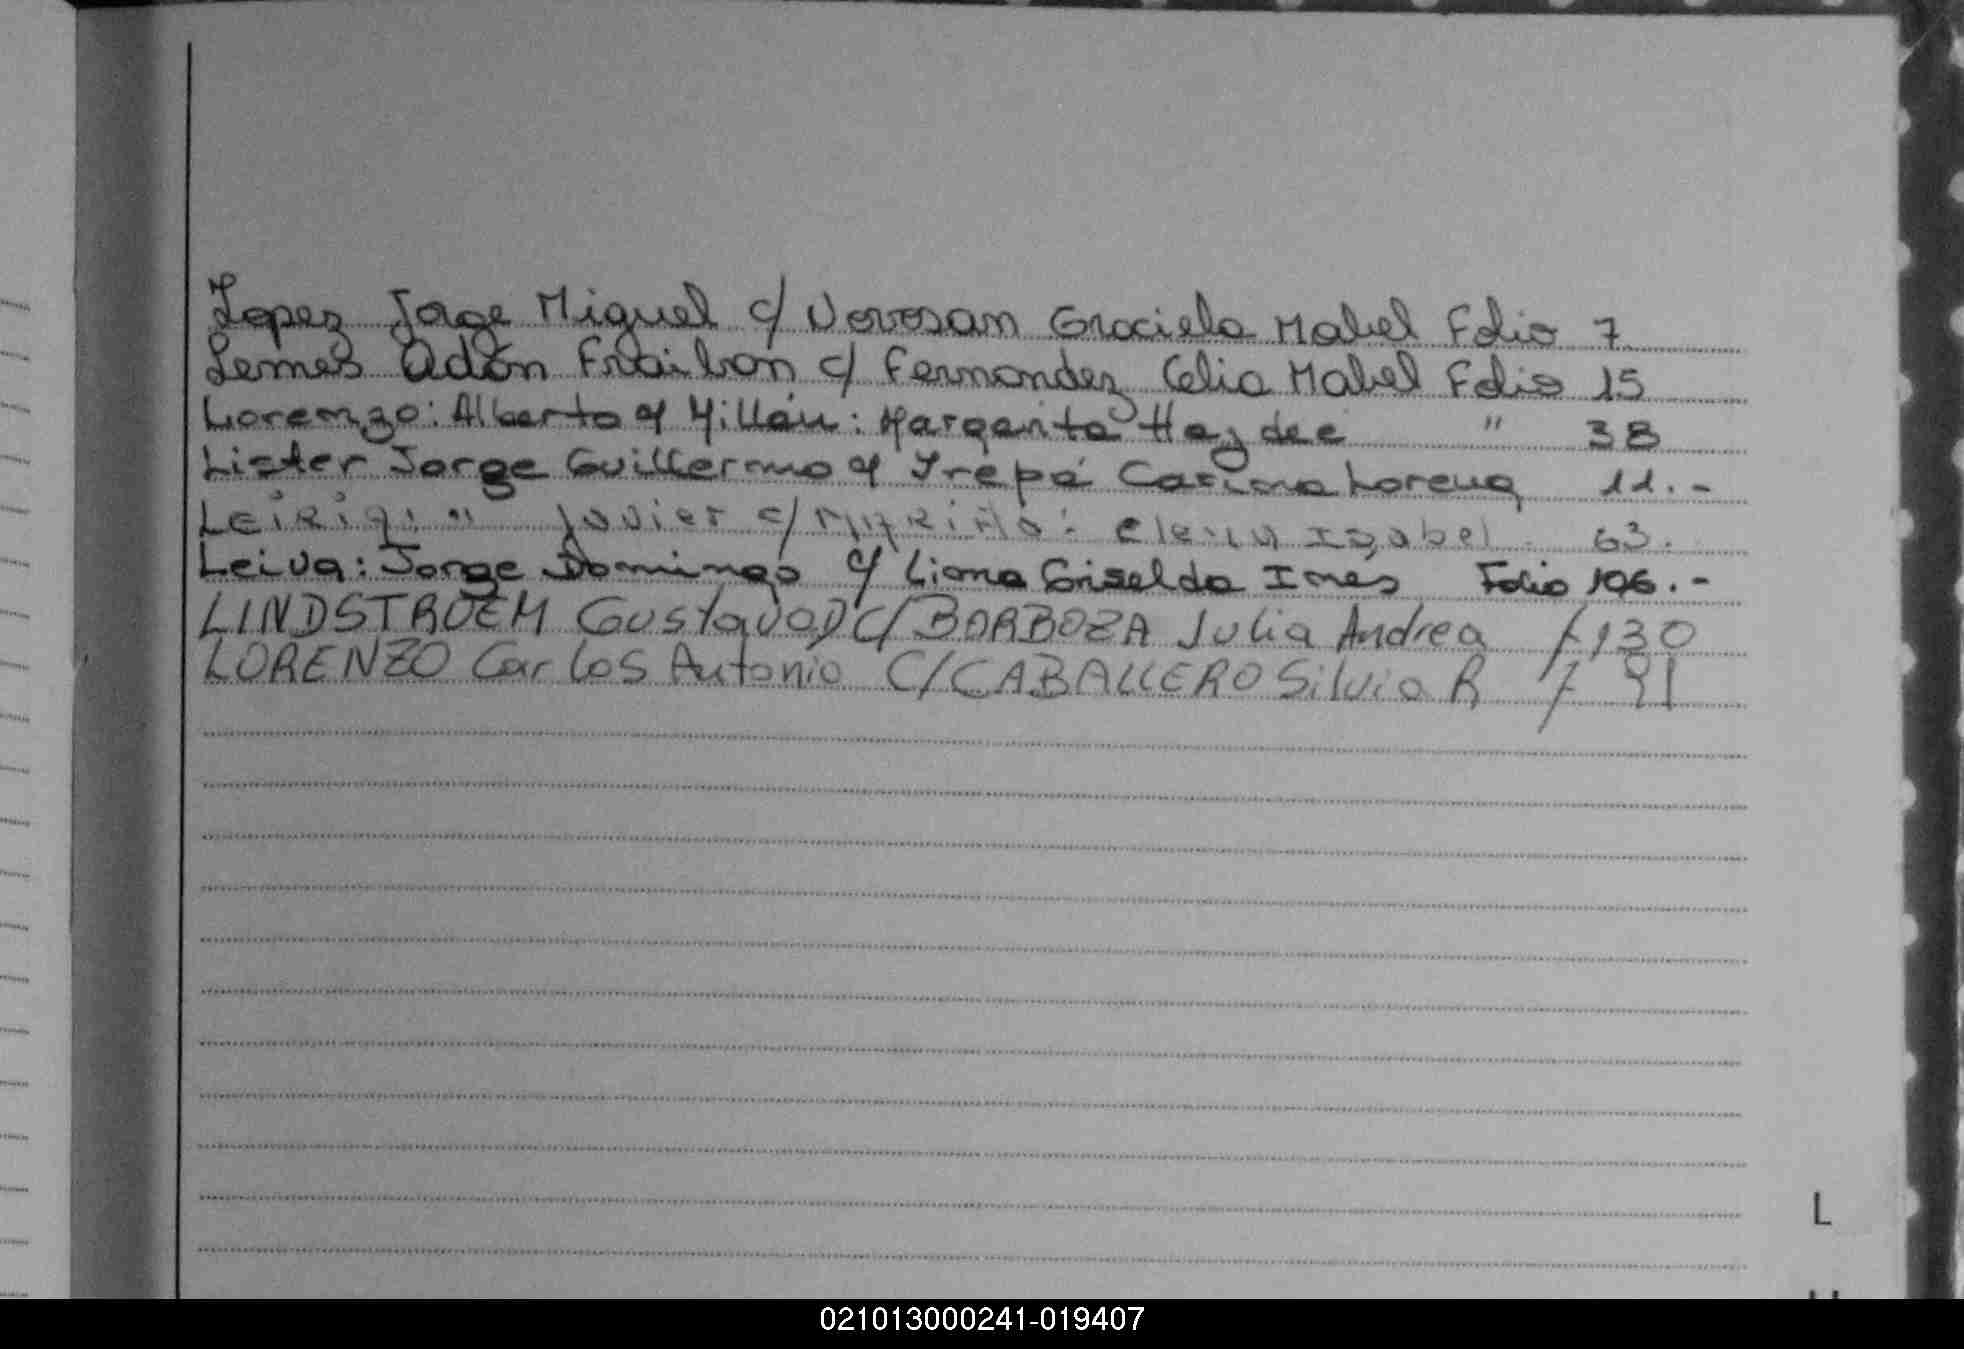 Lopez Jorge Miguel c/ Novosan Graciela Mabel Folio 7
Lemes Adón Froilon c/ Fernandez Celia Mabel Folio 15
Lorenzo: Alberto c/ Millán: Margarita Haydee " 38
Lister Jorge Guillermo c/ Trepá Carina Lorena 11.-
" Javier c/ Elena Isabel 63.
Leiva: Jorge Domingo c/ Liona Griselda Ines Folio 106.-
LINDSTROEM Gustavo D c/ BARBOZA Julia Andrea f 130
LORENZO Carlos Antonio C/ CABALLERO Silvia R f 91
L
021013000241-019407